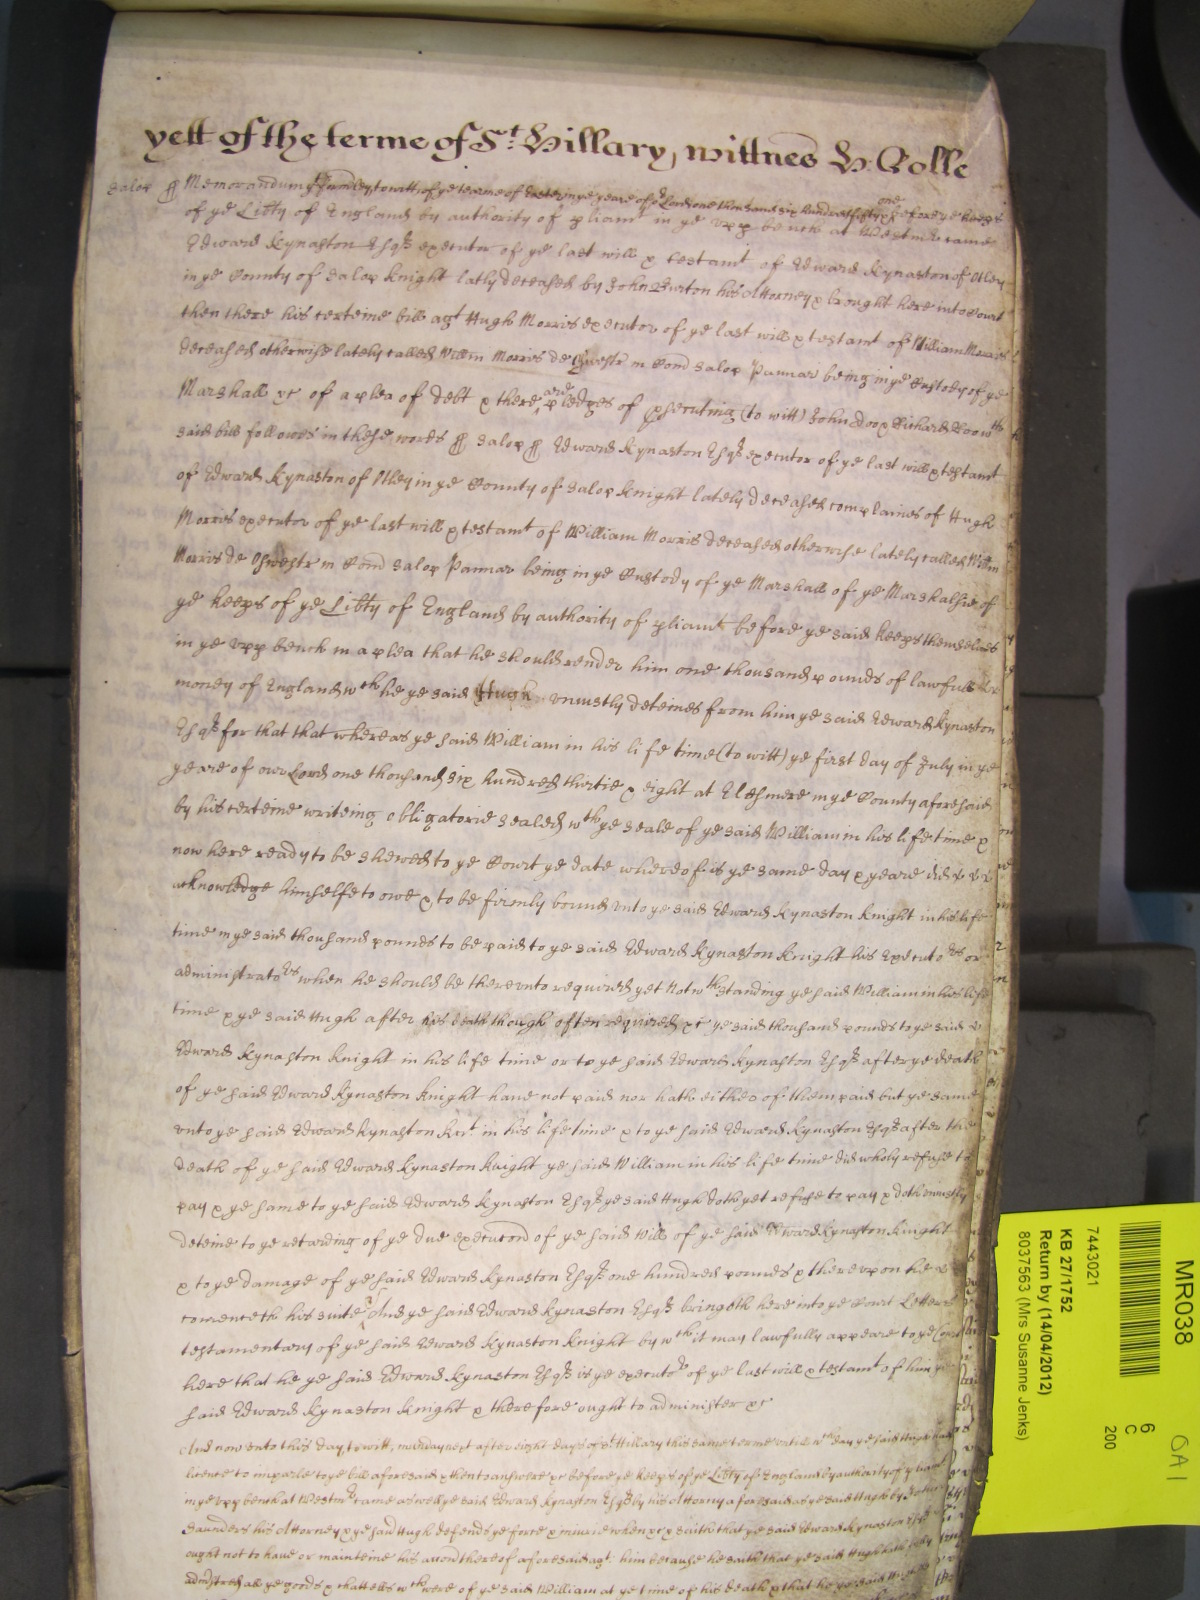 yett of the terme of St. Hillary, wittnes H. Rolle
Salop ∬ Memorandum yt formerly, to witt, of ye terme of Easter in ye yeare of or Lord one thousand six hundred fifty & one before ye keeps
of ye Libty of England by authority of pliamt in ye vpp bench at Westmr came
Edward Kynaston Esqr executor of ye last will & testamt of Edward Kynaston of Otley
in ye County of Salop knight lately deceased by John Burton his Attorney & brought here into Court
then there his certeine bill agt Hugh Morris executor of ye last will & testamt of William Morris
deceased otherwise lately called Willm Morris de Oswestr in Com Salop Pannar being in ye Custody of ye
Marshall &c of a plea of debt & there are pledges of psecuting (to witt) John Doo & Richard Roo wch
said bill followes in these words ∬ Salop ∬ Edward Kynaston Esqr executor of ye last will & testamt
of Edward Kynaston of Otley in ye County of Salop knight lately deceased complaines of Hugh
Morris executor of ye last will & testamt of William Morris deceased otherwise lately called Willm
Morris de Oswestr in Com Salop Pannar being in ye Custody of ye Marshall of ye Marshalsie of
ye keeps of ye Libty of England by authority of pliamt before ye said keeps themselves
in ye vpp bench in a plea that he should render him one thousand pounds of lawfull
money of England wch he ye said Hugh vniustly deteines from him ye said Edward Kynaston
Esqr for that that whereas ye said William in his life time (to witt) ye first day of July in ye
yeare of our Lord one thousand six hundred thirtie & eight at Elesmere in ye County aforesaid
by his certeine writeing obligatorie sealed wth ye seale of ye said William in his life time &
now here ready to be shewed to ye Court ye date whereof is ye same day & yeare did
acknowledge himselfe to owe & to be firmly bound vnto ye said Edward Kynaston knight in his life
time in ye said thousand pounds to be paid to ye said Edward Kynaston knight his Executors or
administrators when he should be therevnto required yet Notwthstanding ye said William in his life
time & ye said Hugh after his death though often required &c ye said thousand pounds to ye said
Edward Kynaston knight in his life time or to ye said Edward Kynaston Esqr after ye death
of ye said Edward Kynaston knight haue not paid nor hath either of them paid but ye same
vnto ye said Edward Kynaston knt. in his life time & to ye said Edward Kynaston Esqr after the
death of ye said Edward Kynaston knight ye said William in his life time did wholy refuse to
pay & ye same to ye said Edward Kynaston Esqr ye said Hugh doth yet refuse to pay & doth vniustly
deteine to ye retarding of ye due execucon of ye said Will of ye said Edward Kynaston knight
& to ye damage of ye said Edward Kynaston Esqr one hundred pounds & therevpon he
comenceth his suite And ye said Edward Kynaston Esqr bringeth here into ye Court Letters
testamentary of ye said Edward Kynaston knight by wch it may lawfully appeare to ye Court
here that he ye said Edward Kynaston Esqr is ye executor of ye last will & testamt of him ye
said Edward Kynaston knight & therefore ought to administer &c
And now vnto this day, to witt, munday next after eight days of St Hillary this same terme vntill wch day ye said Hugh had
licence to imparle to ye bill aforesaid & then to answere &c before ye keeps of ye Libty of England by authority of pliamt
in ye vpp bench at Westmr came aswell ye said Edward Kynaston Esqr by his Attorny aforesaid as ye said Hugh by
Saunders his Attorney & ye said Hugh defends ye force & iniurie when &c & saith that ye said Edward Kynaston Esqr
ought not to haue or mainteine his accon thereof aforesaid agt. him because he saith that ye said Hugh hath fully
admstred all ye goods & chattells wch were of ye said William at ye time of his death & that he ye said Hugh
MR038
6
C
200
7443021
KB 27/1752
Return by (14/04/2012)
8037563 (Mrs Susanne Jenks)
OA1